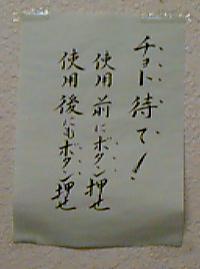 チョト待て!
使用前にボタン押せ
使用後にもボタン押せ